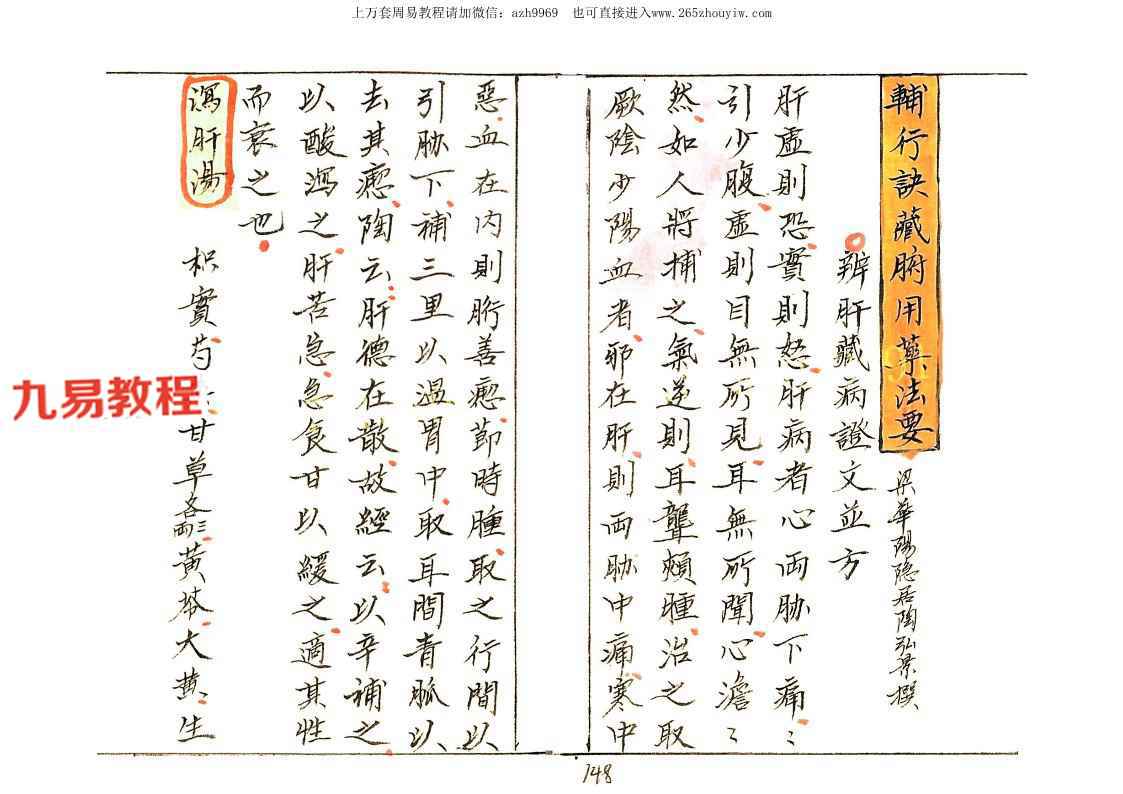 上万套周易教程请加微信：azh9969　也可直接进入www.265zhouyiw.com
輔行訣藏腑用藥法要
梁華陽隐居陶弘景撰
辨肝藏病證文並方
肝虛則恐實則怒肝病者心両胁下痛〻
引少腹虛則目無所見耳無所聞心澹〻
然如人將捕之氣逆則耳聾頰腫治之取
厥陰少陽血者邪在肝則両胁中痛寒中
惡血在内則胻善瘛節時腫取之行間以
引胁下補三里以温胃中取耳間青脈以
去其瘛陶云肝德在散故經云以辛補之
以酸瀉之肝苦急急食甘以緩之適其性
而衰之也
瀉肝湯
枳實芍
甘草各三両黄芩大黄生
九易教程
148